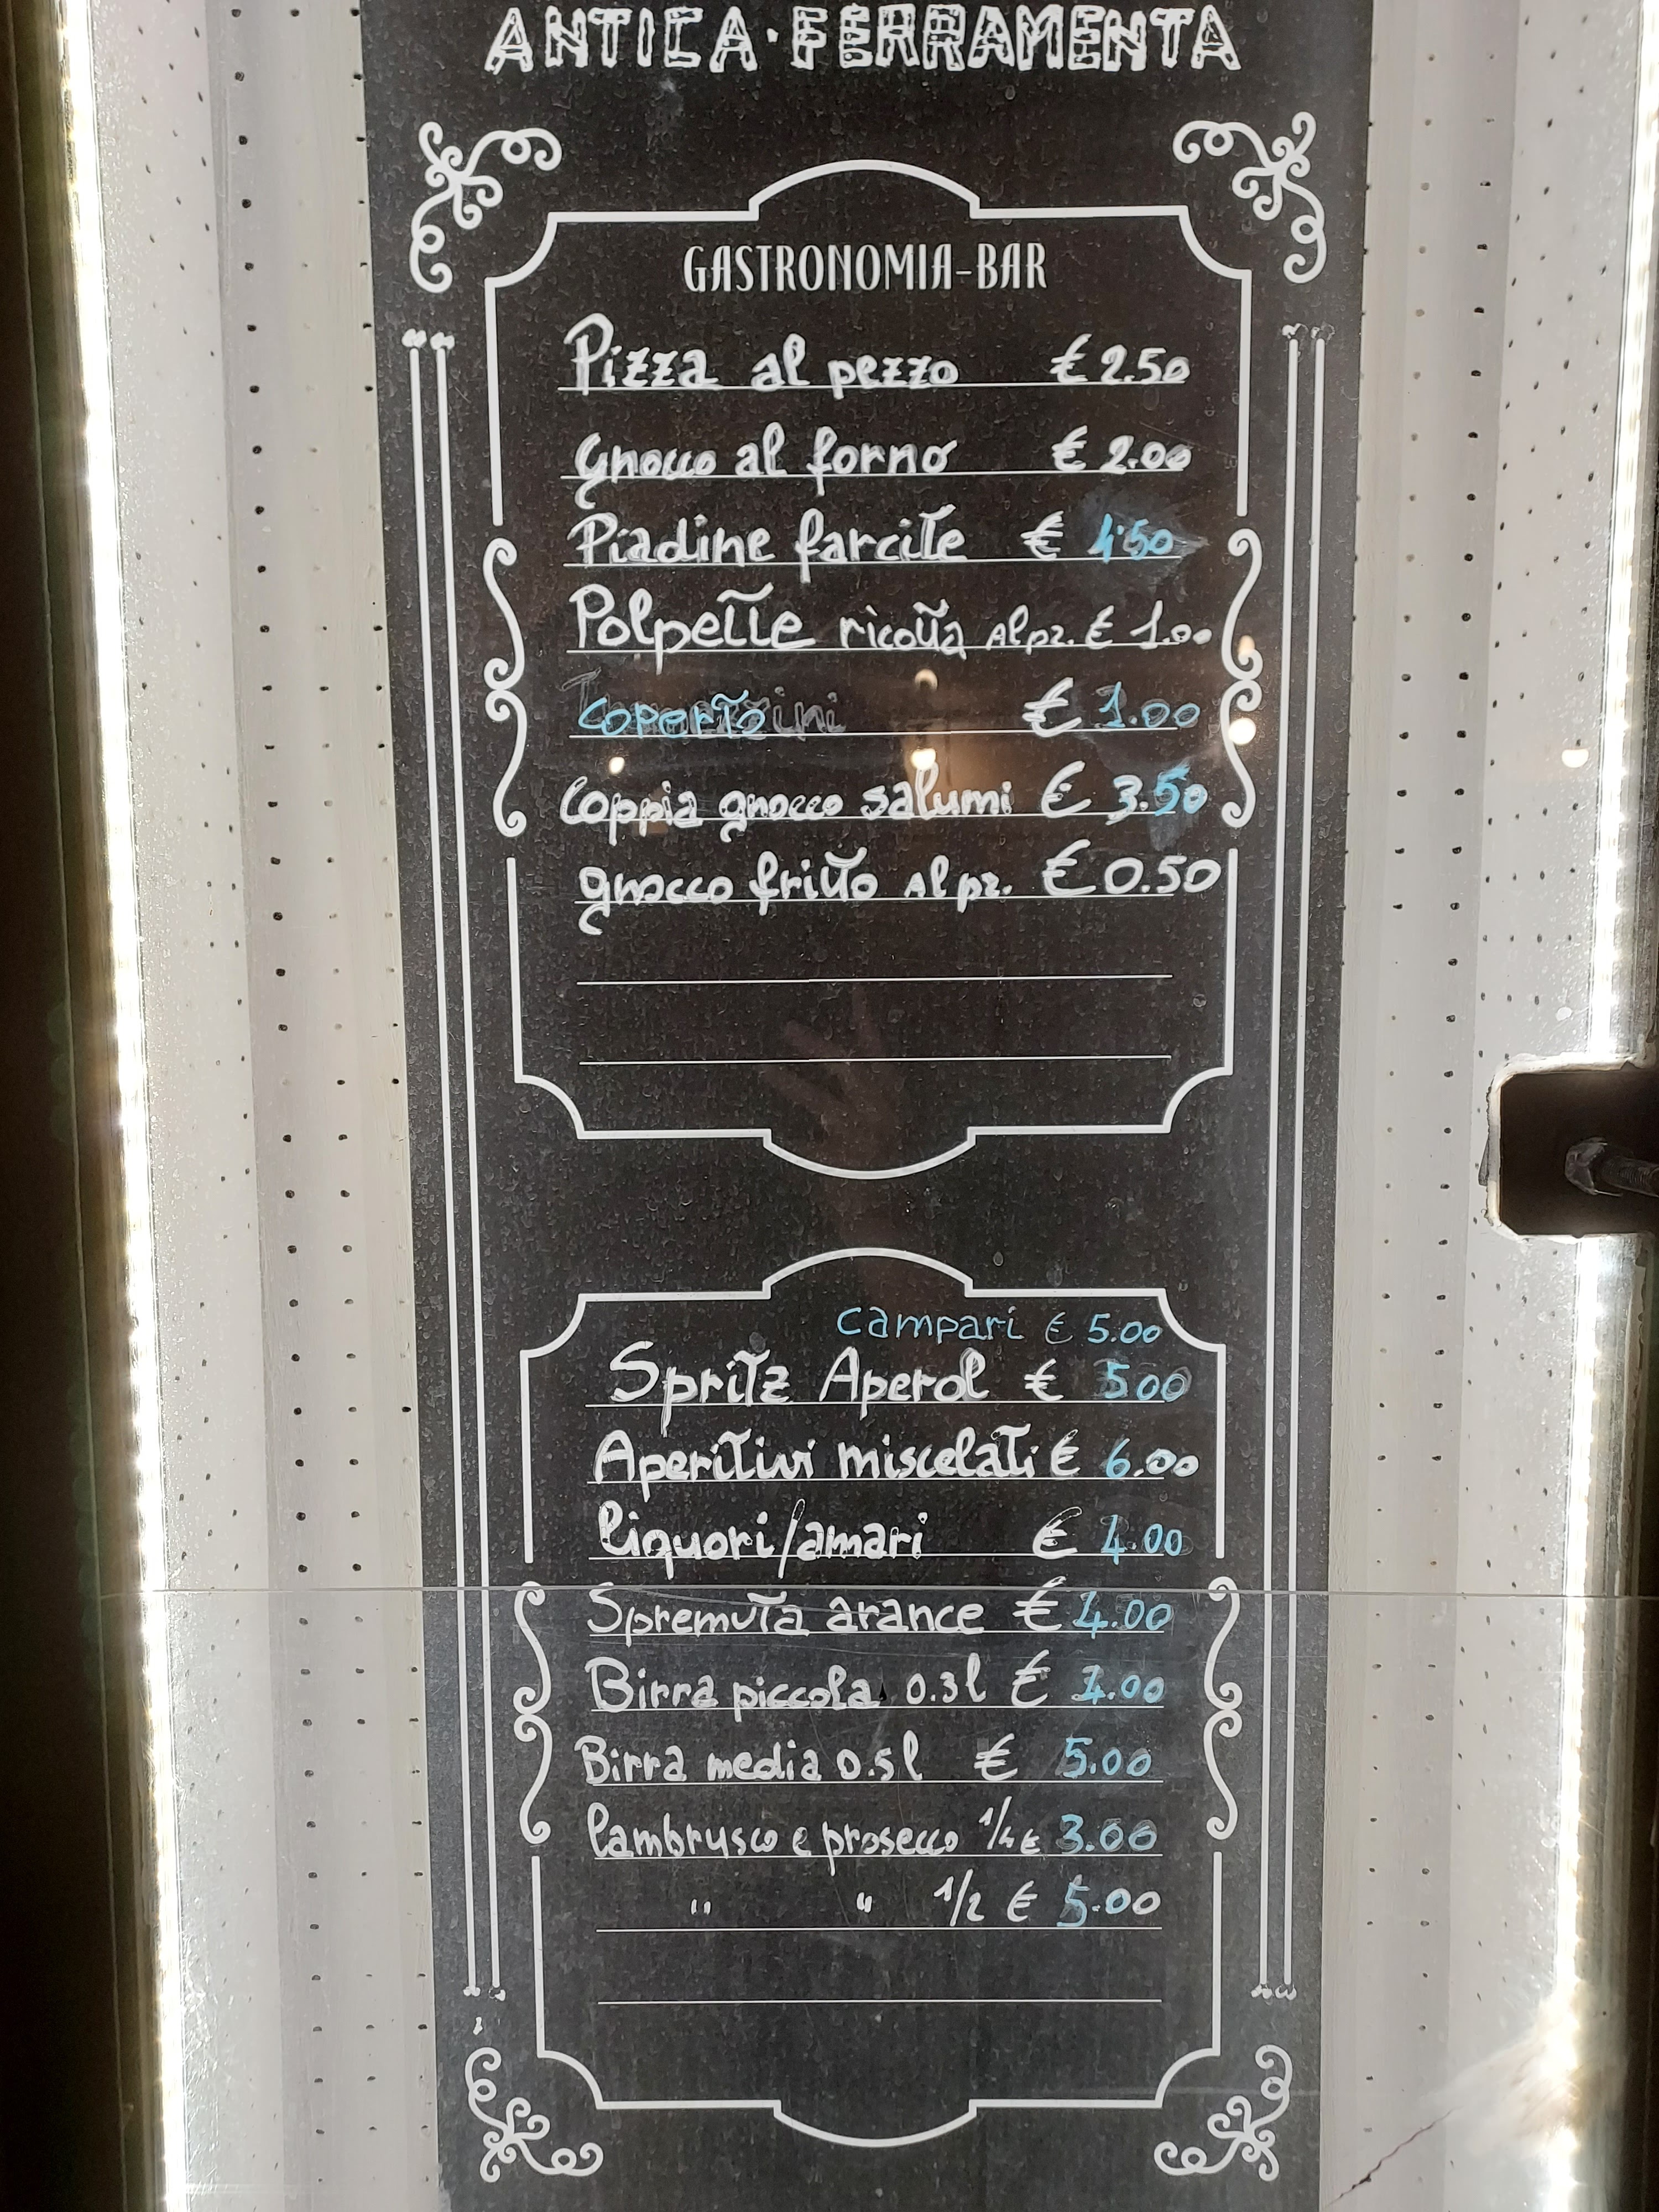 ANTICA·FERRAMENTA
GASTRONOMIA-BAR
Pizza al pezzo € 2.50
Gnocco al forno € 2.00
Piadine farcite € 4.50
Polpette ricotta al pz. € 1.00
coperto € 1.00
Coppia gnocco salumi € 3.50
gnocco fritto al pz. € 0.50
campari € 5.00
Spritz Aperol € 5.00
Aperitivi miscelati € 6.00
liquori/amari € 4.00
Spremuta arance € 4.00
Birra piccola 0.3l €
Birra media 0.5l € 5.00
lambrusco e prosecco 1/4 € 3.00
" " 1/2 € 5.00